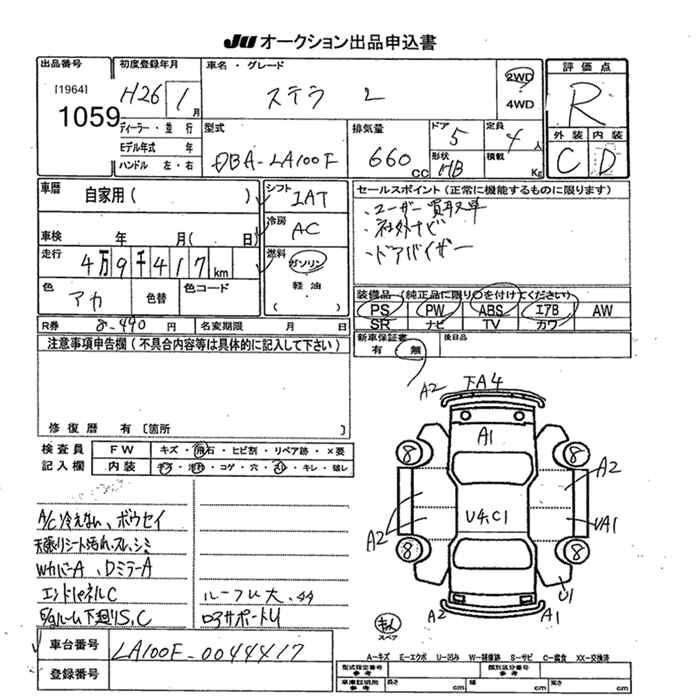 JU オークション出品申込書
出品番号 初度登録年月 車名・グレード 評価点
[1964] 1059 H26 1月 ステラ L 2WD 4WD R
ディーラー・並行 型式 排気量 ドア 定員 外装 内装
モデル年式 年 DBA-LA100F 660CC 5 4人 C D
ハンドル 左・右 形状 HB 積載 Kg
車歴 自家用( ) シフト IAT セールスポイント(正常に機能するものに限ります)
車検 年 月( 日) 冷房 AC ・ユーザー買取車
・社外ナビ
・ドアバイザー
走行 4万9千417km 燃料 ガソリン
軽油
( )
色 アカ 色替 色コード
装備品(純正品に限り○を付けてください)
PS PW ABS エアB AW
SR ナビ TV カワ
R券 8,490円 名変期限 月 日
新車保証書 後日品
有 無
注意事項申告欄(不具合内容等は具体的に記入して下さい)
修復歴 有〔箇所 〕
A2 下A4
A1
A2
A2
U4,C1
UA1
U1
A2
A1
8 8
8 8
スペア
検査員 記入欄
FW キズ・飛石・ヒビ割・リペア跡・×要
内装 キズ・汚れ・コゲ・穴・スレ・キレ・破レ
A/C冷えない、ボウセイ
天張りシート汚れ、スレ、シミ
WカバーA、DミラーA
エンドパネルC
E/gルーム下廻りS,C
ロアサポートU
車台番号 LA100F-0044417
登録番号
A-キズ E-エクボ U-凹み W-補修跡 S-サビ C-腐食 XX-交換済
型式指定番号 参考 類別区分番号 参考
車庫証明用 参考 長さ cm 幅 cm 高さ cm